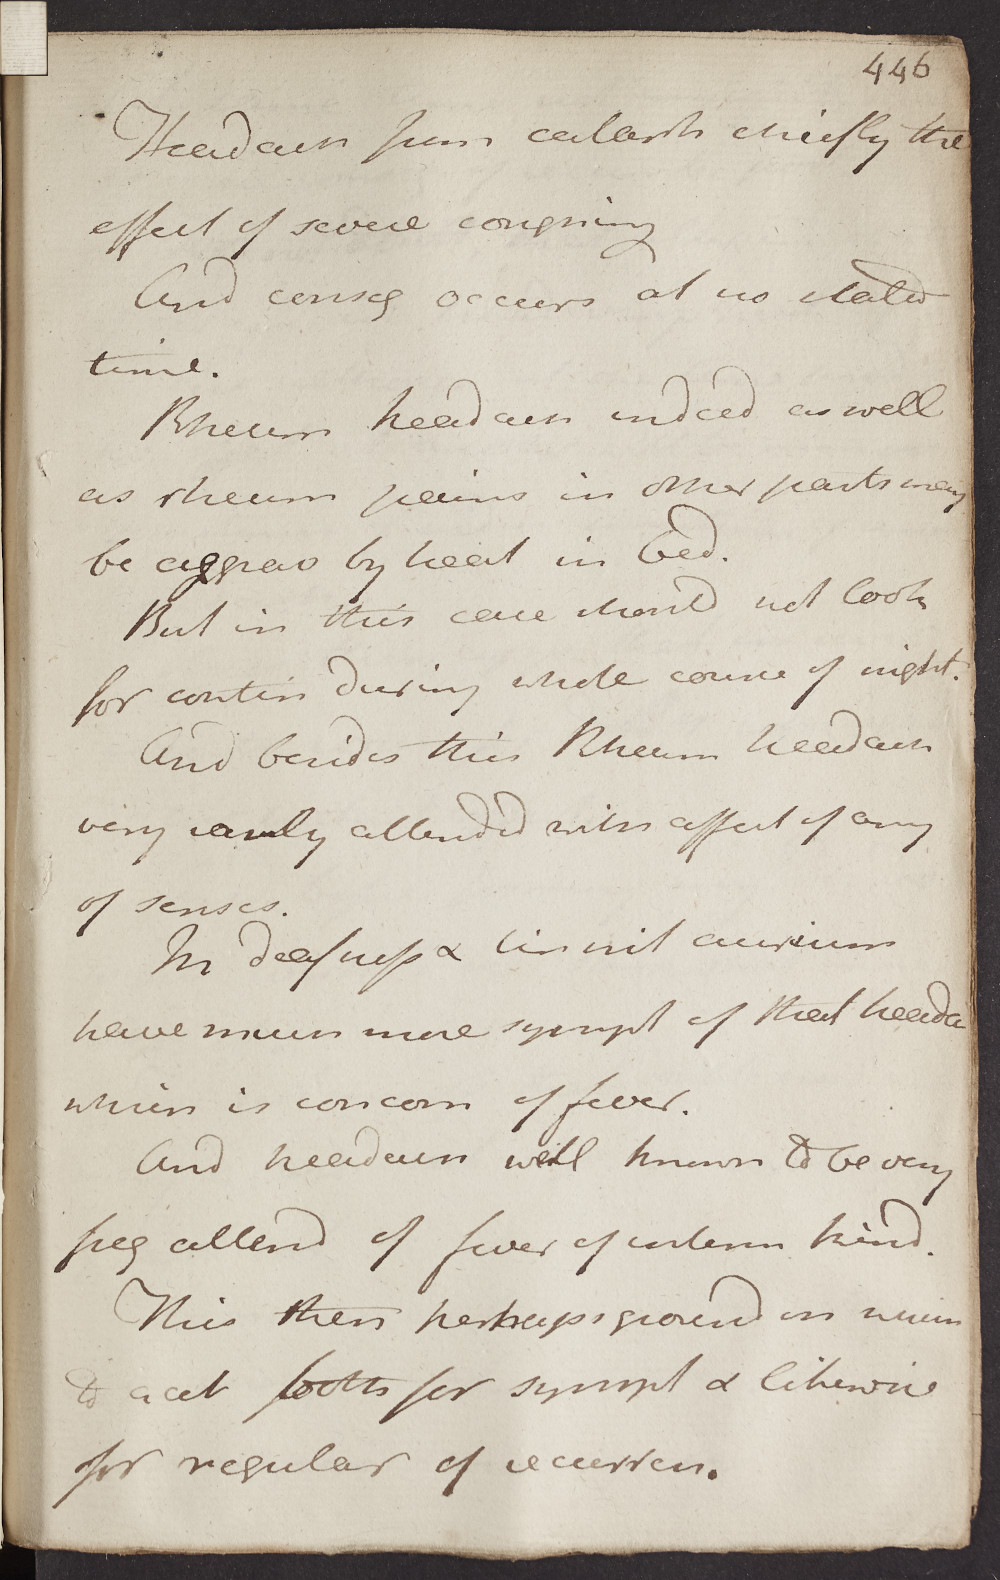 446
Headach from catarrh chiefly the
effect of severe coughing
And conseq occurs at no stated
time.
Rheum headach indeed as well
as rheum pains in other parts may
be aggrav by heat in bed.
But in this case should not look
for contin during whole course of night.
And besides this Rheum headach
very rarely attended with affect of any
of senses.
In deafness & tinnit aurium
have much more sympt of that heada
which is concom of fever.
And headach well known to be very
freq attend of fever of interm kind.
This then perhaps ground on which
to act both for sympt & likewise
for regular of recurren.